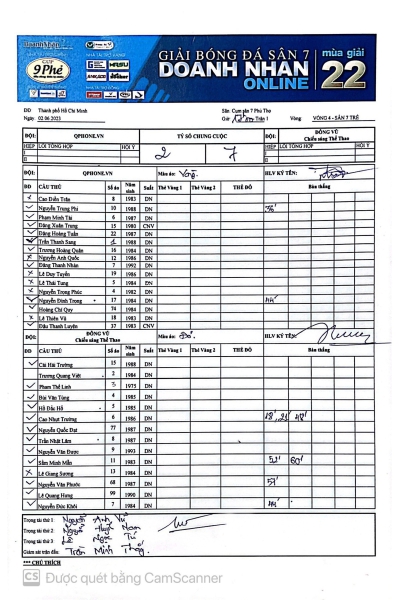 doanhNhân
CÚP
9 Phê
GIẢI BÓNG ĐÁ SÂN 7
DOANH NHÂN
ONLINE
mùa giải
22
NHÀ TÀI TRỢ ĐỒNG
ĐĐ Thành phố Hồ Chí Minh Sân: Cụm sân 7 Phú Thọ
Ngày: 02.06.2023 Giờ Trận 1 Vòng: VÒNG 4 - SÂN 7 TRẺ
ĐỘI: QPHONE.VN TỶ SỐ CHUNG CUỘC ĐỘI: ĐÔNG VŨ
Chiếu sáng Thể Thao
HIỆP LỖI TỔNG HỢP HỘI Ý 2 7 HIỆP LỖI TỔNG HỢP HỘI Ý
I I
II II
ĐỘI: QPHONE.VN Màu áo: Vàng HLV KÝ TÊN:
ĐD CẦU THỦ Số áo Năm sinh Suất Thẻ Vàng 1 Thẻ Vàng 2 THẺ ĐỎ Bàn thắng
Cao Điền Trân 8 1983 DN
Nguyễn Trung Phi 10 1988 DN 36'
Phạm Minh Tài 6 1987 DN
Đặng Xuân Trung 15 1980 CNV
Đặng Hoàng Tuấn 22 1987 DN
Trần Thanh Sang 1 1988 DN
Trương Hoàng Quân 16 1984 DN
Nguyễn Anh Quốc 12 1986 DN
Đặng Thanh Nhàn 7 1992 DN
Lê Duy Tuyển 19 1986 DN
Lê Thái Tung 5 1984 DN
Nguyễn Trọng Phúc 4 1982 DN
Nguyễn Đình Trong 17 1984 DN 44'
Hoàng Chí Quy 74 1984 DN
Lê Thiên Vũ 18 1983 DN
Đậu Thanh Luyến 37 1983 CNV
ĐỘI: ĐÔNG VŨ
Chiếu sáng Thể Thao Màu áo: Đỏ HLV KÝ TÊN:
ĐD CẦU THỦ Số áo Năm sinh Suất Thẻ Vàng 1 Thẻ Vàng 2 THẺ ĐỎ Bàn thắng
Cái Hải Trường 15 1988 DN
Trương Quang Việt 2 1984 DN
Phạm Thế Linh 3 1975 DN
Bùi Văn Tùng 4 1985 DN
Hồ Đắc Hồ 5 1985 DN
Cao Nhựt Trường 6 1986 DN 18', 21' 48'
Nguyễn Quốc Đạt 77 1987 DN
Trần Nhật Lâm 8 1987 DN
Nguyễn Văn Được 9 1993 DN
Sầm Minh Mẫn 11 1983 DN 52' 60'
Lê Giang Sương 13 1984 DN
Nguyễn Văn Phước 68 1987 DN 57'
Lê Quang Hưng 99 1990 DN
Nguyễn Đức Khôi 7 1984 DN 44'
Trọng tài thứ 1 Nguyễn Anh Vũ
Trọng tài thứ 2 Ngọc Nam
Trọng tài thứ 3 Lê Ngọc Tú
Giám sát trận đấu: Trần Minh
*** CHÚ THÍCH
CS Được quét bằng CamScanner